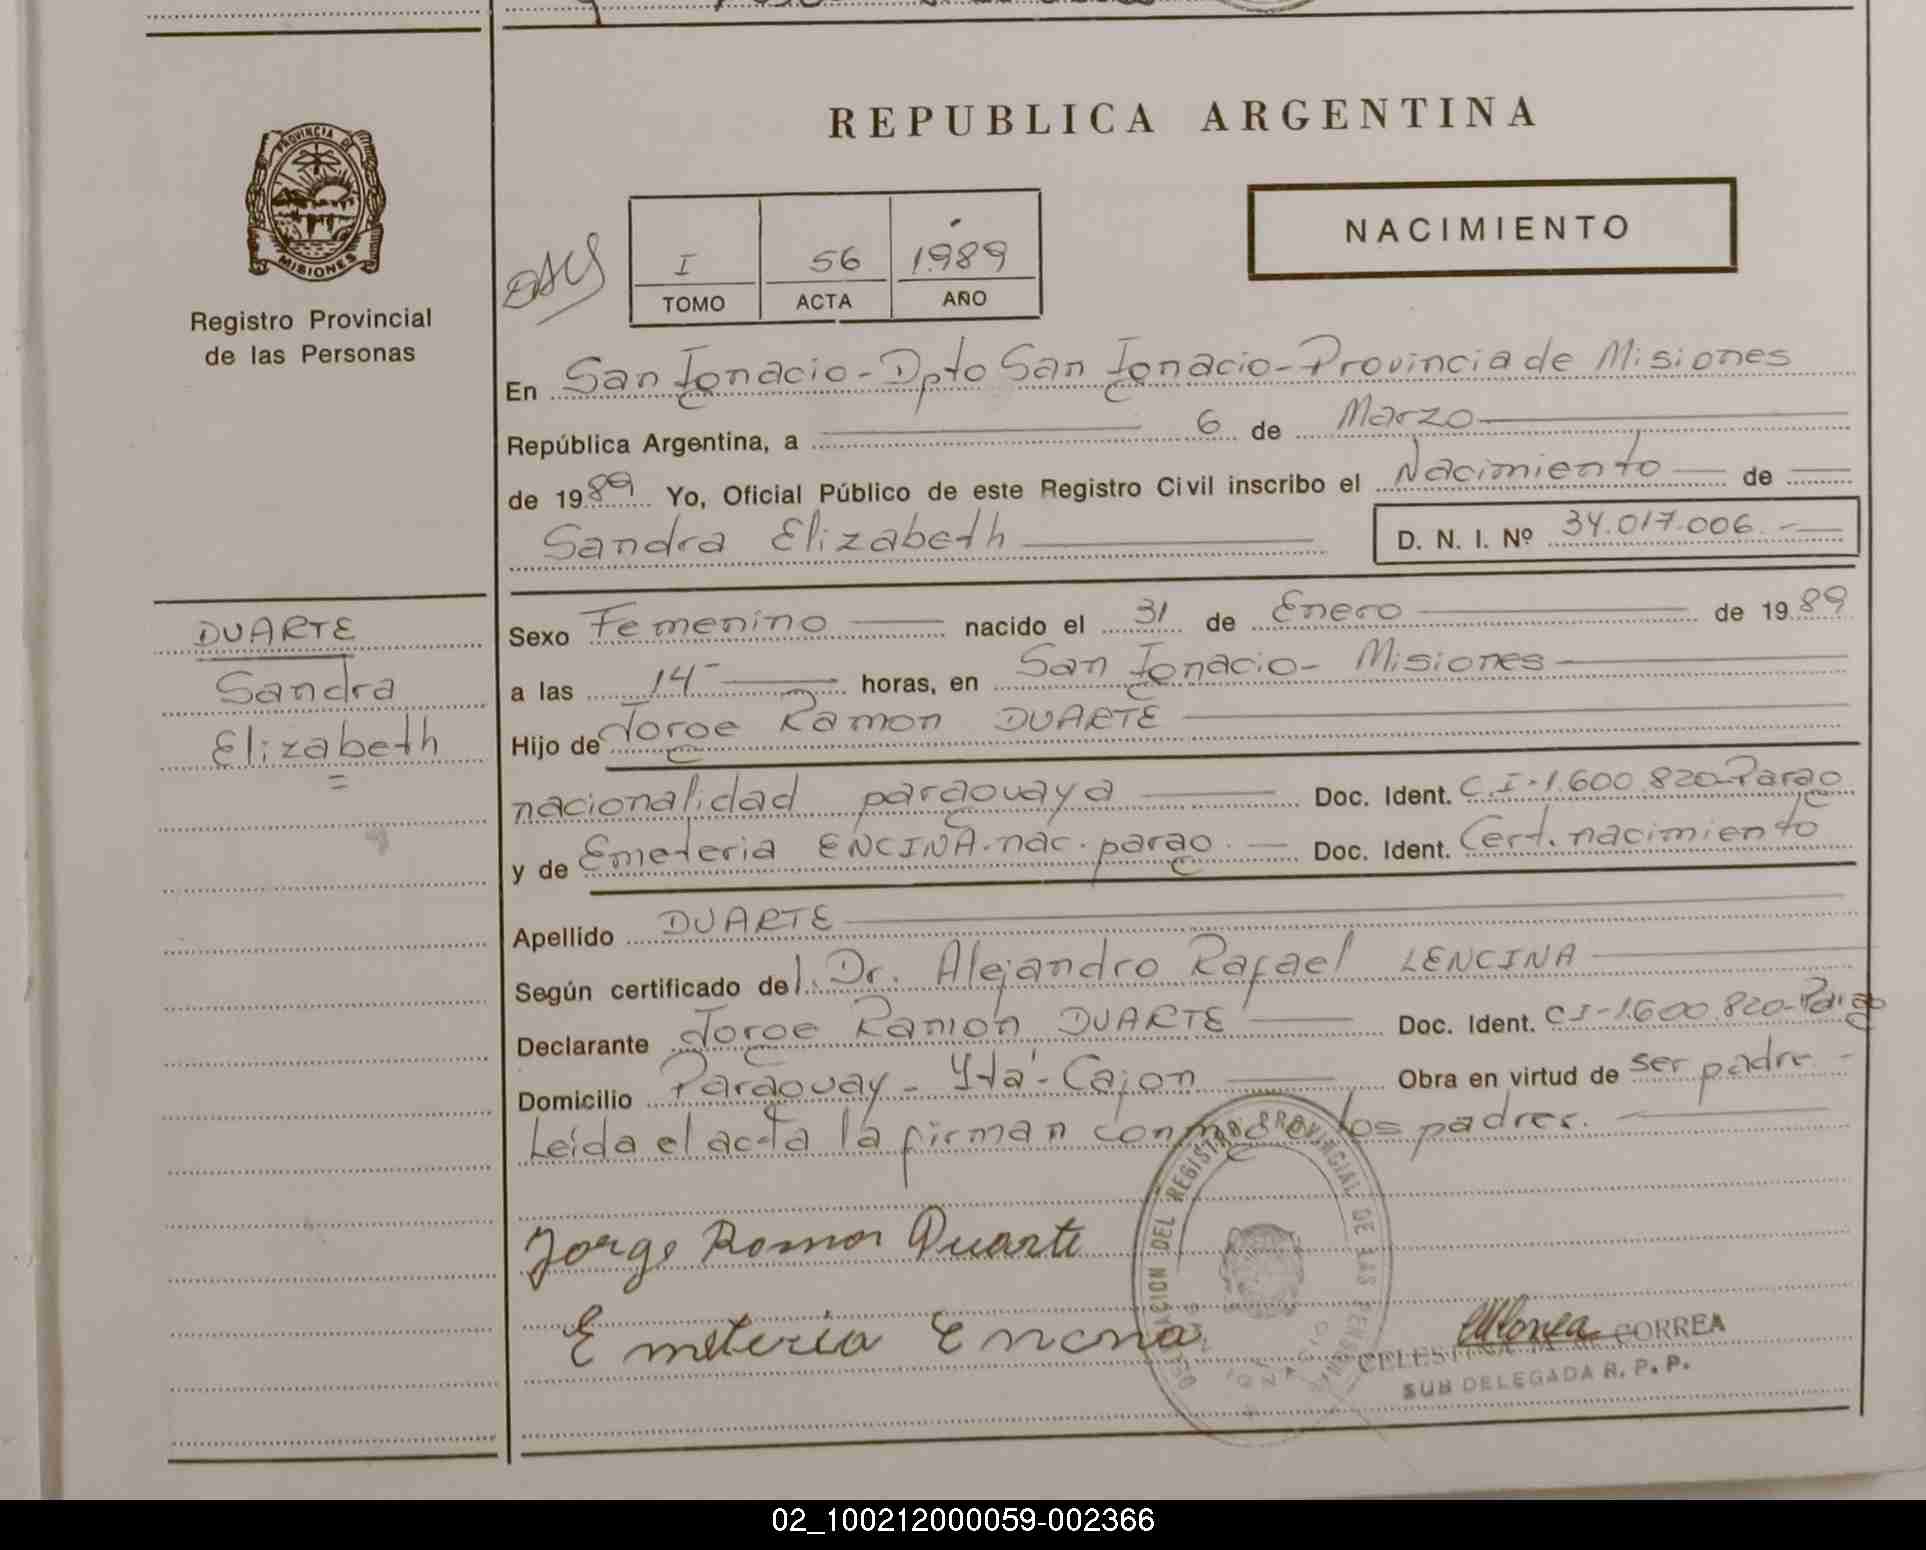 REPUBLICA ARGENTINA
PROVINCIA DE
MISIONES
Registro Provincial
de las Personas
NACIMIENTO
I 56 1989
TOMO ACTA AÑO
En San Ignacio - Dpto San Ignacio - Provincia de Misiones
República Argentina, a 6 de Marzo
de 1989 Yo, Oficial Público de este Registro Civil inscribo el Nacimiento de
Sandra Elizabeth D. N. I. Nº 34.017.006.-
DUARTE
Sandra
Elizabeth
Sexo Femenino nacido el 31 de Enero de 1989
a las 14 horas, en San Ignacio - Misiones
Hijo de Jorge Ramon DUARTE
nacionalidad paraguaya Doc. Ident. C.I-1.600.820-Parag
y de Emeteria ENCINA. nac. parag. Doc. Ident. Cert. nacimiento
Apellido DUARTE
Según certificado del Dr. Alejandro Rafael LENCINA
Declarante Jorge Ramón DUARTE Doc. Ident. CI-1.600.820-Parag
Domicilio Paraguay - Ytá - Cajon Obra en virtud de ser padre -
Leída el acta la firman conmigo los padres.
DEL REGISTRO PROVINCIAL DE LAS PERSONAS
Jorge Ramon Duarte
Emeteria Encina
CORREA
SUB DELEGADA R. P. P.
02_100212000059-002366